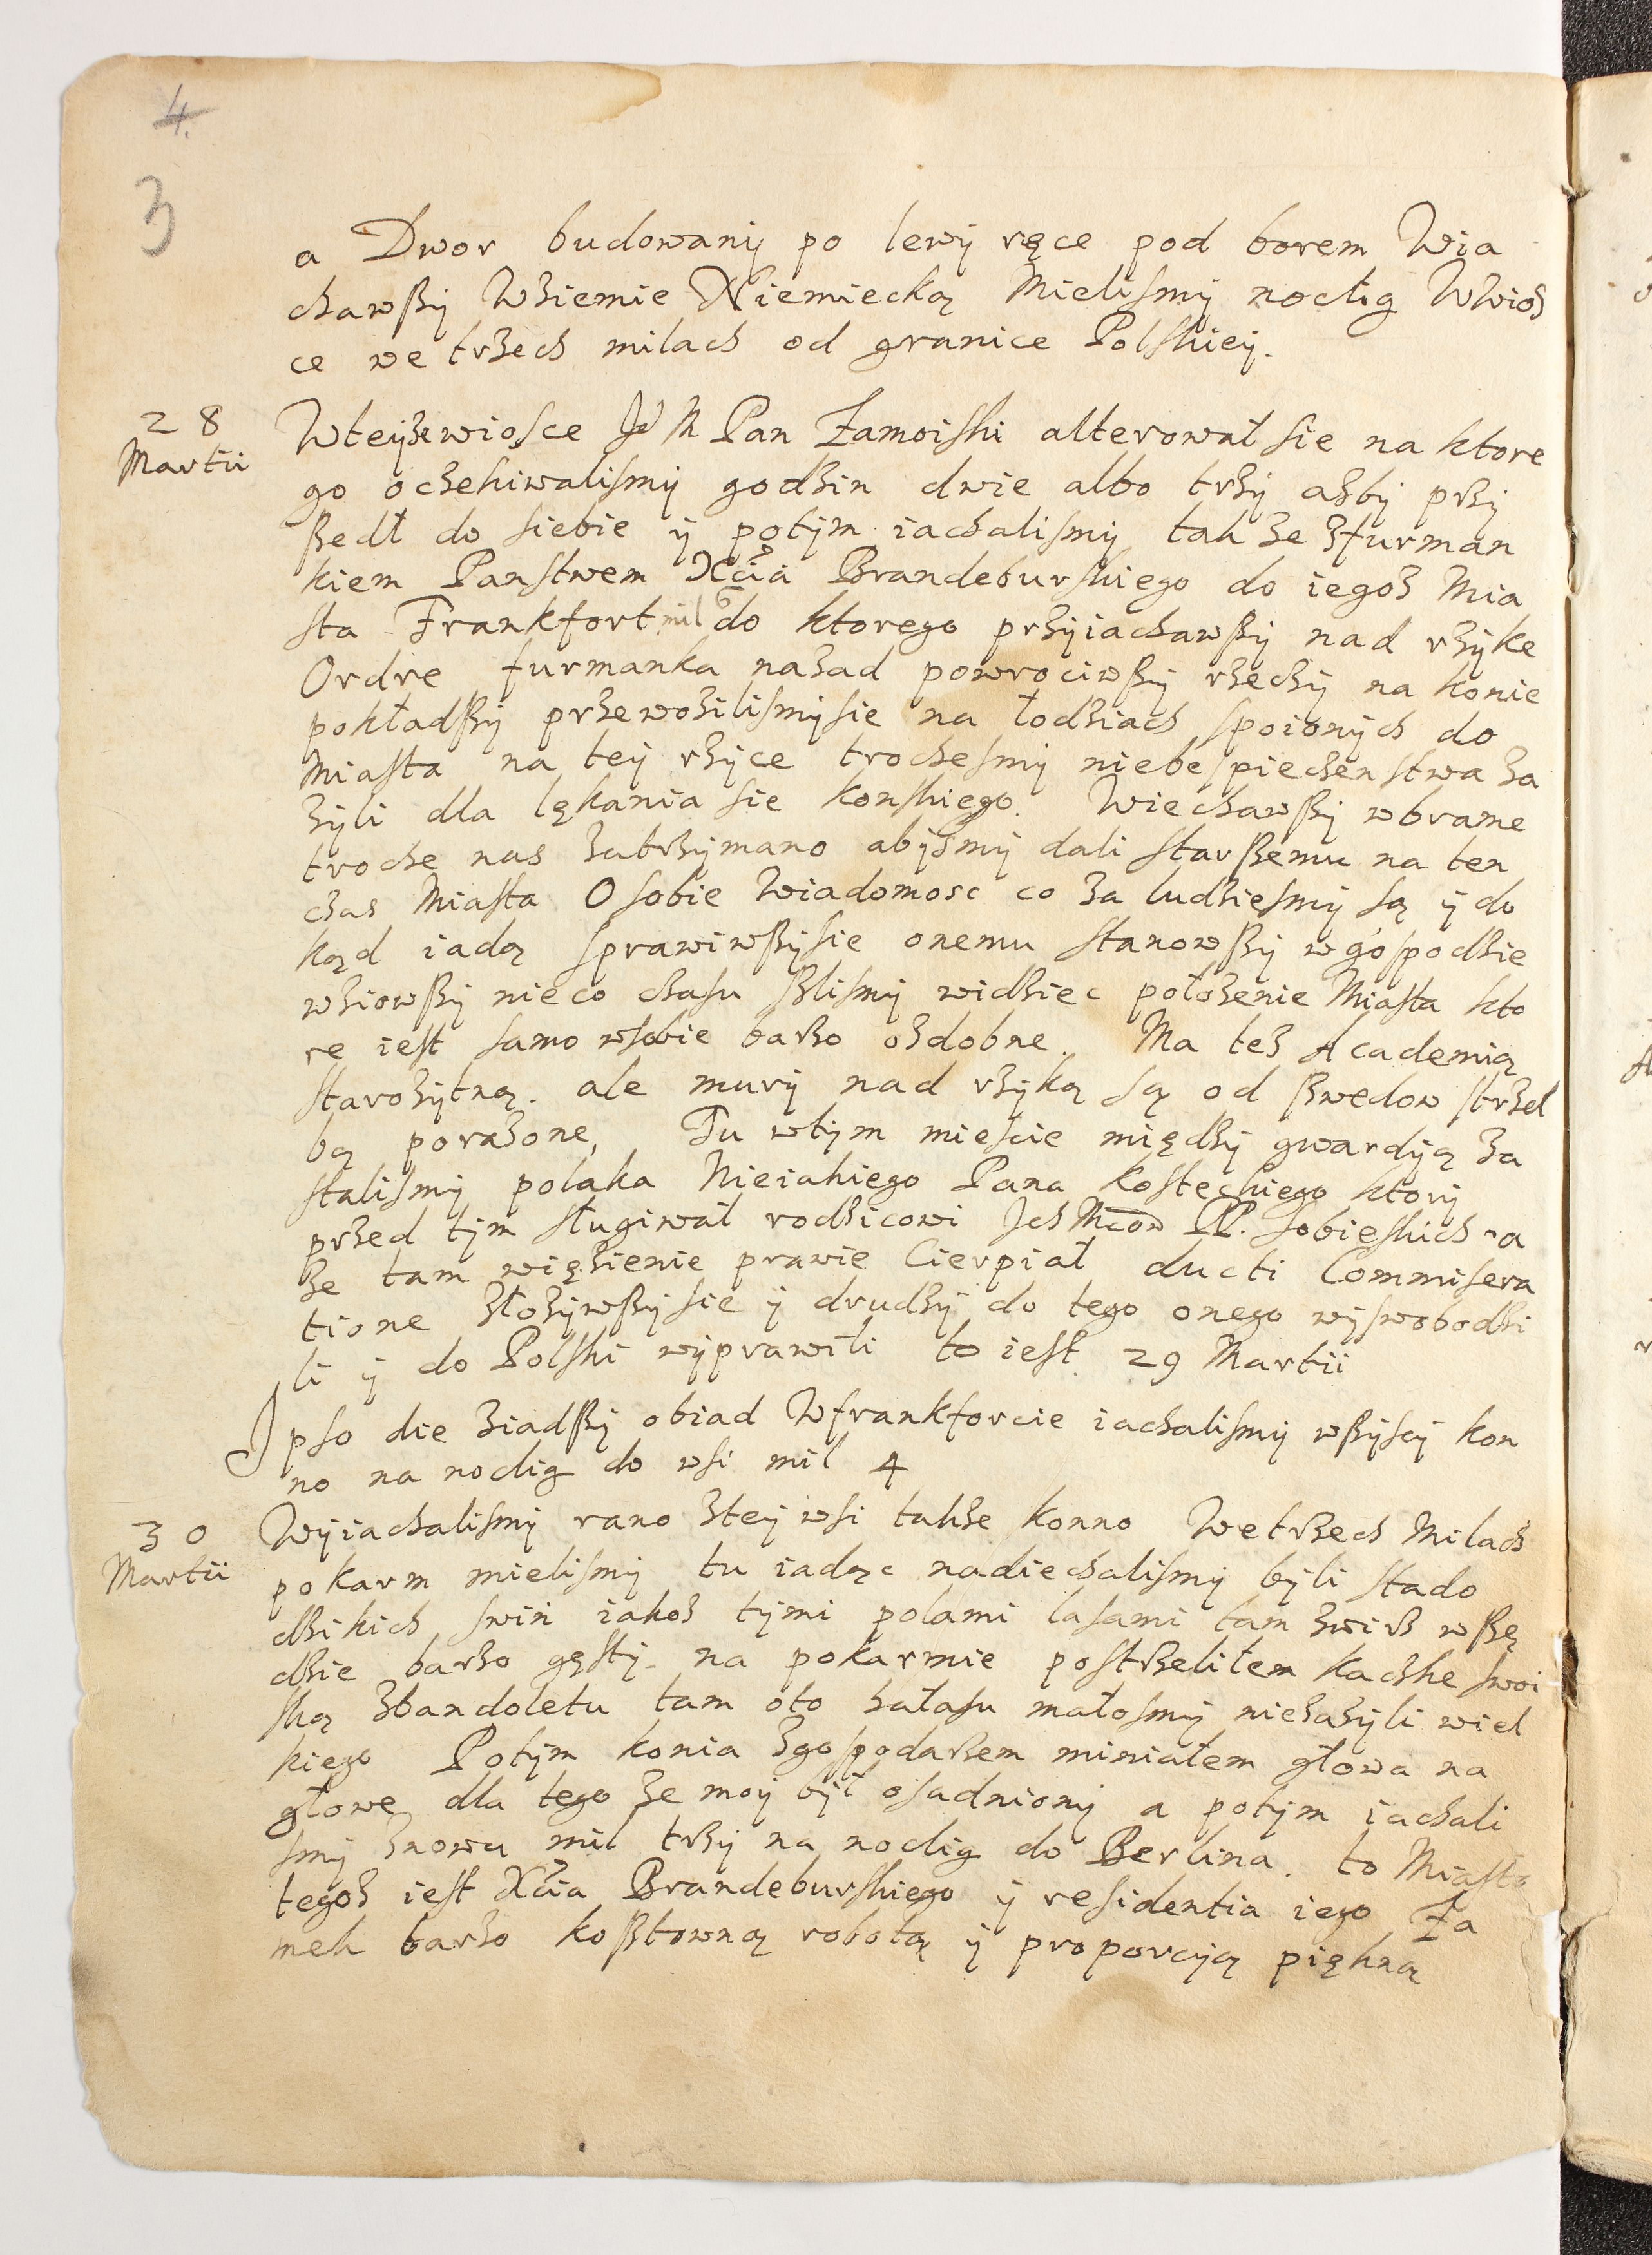 4.
3
a Dwor budowany po lewy ręce pod borem Wia
chawszy Wziemie Niemiecką Mielismy noclig Wwios
ce we trzech milach od granice Polskiey.
28
Martii
Wteyze wiosce Jch M Pan Zamoiski alterował sie na ktore
go oczekiwalismy godzin dwie albo trzy azby przy
szedł do siebie y potym iachalismy takze zfurman
kiem Panstwem Xcia Brandeburskiego do iegoz Mia
sta Frankfort mil 6 do ktorego przyiachawszy nad rzyke
Ordre furmanka nazad powrociwszy rzeczy na konie
pokładszy przewozilismysie na łodziach spoionych do
Miasta na tey rzyce trochesmy niebespieczenstwa za
zyli dla lękania sie konskiego. Wiechawszy wbrame
troche nas zatrzymano abysmy dali starszemu na ten
czas Miasta O sobie Wiadomosc co za ludziesmy są y do
kąd iadą sprawiwszysie onemu stanowszy wgospodzie
wziowszy nieco czasu szlismy widziec położenie Miasta kto
re iest samo wsobie barzo ozdobne. Ma tez Academią
starozytną. ale mury nad rzyką są od szwedow strzel
bą porazone, Tu wtym miescie między gwardyą za
stalismy polaka Nieiakiego Pana Kosteckiego ktory
przed tym sługiwał rodzicowi Jch Mcow PP. Sobieskich a
ze tam więzienie prawie Cierpiał ducti Commisera
tione złożywszysie y drudzy do tego onego wyswobodzi
li y do Polski wyprawili to iest 29 Martii
Ipso die ziadszy obiad Wfrankforcie iachalismy wszyscy kon
no na noclig do wsi mil 4
30
Martii
Wyiachalismy rano ztey wsi takze konno We trzech Milach
pokarm mielismy tu iadąc nadiechalismy byli stado
dzikich swin iakoz tymi polami lasami tam zwirz wszę
dzie barzo gęsty. na pokarmie postrzelitem kaczke swoi
ską zbandoletu tam oto hałasu małosmy niezazyli wiel
kiego Potym konia zgospodarzem miniałem głowa na
głowe dla tego ze moy był osadniony a potym iachali
smy znowu mil trzy na noclig do Berlina. to Miasto
tegoz iest Xcia Brandeburskiego y residentia iego Za
mek barzo kosztowną robotą y proporcyą piękną